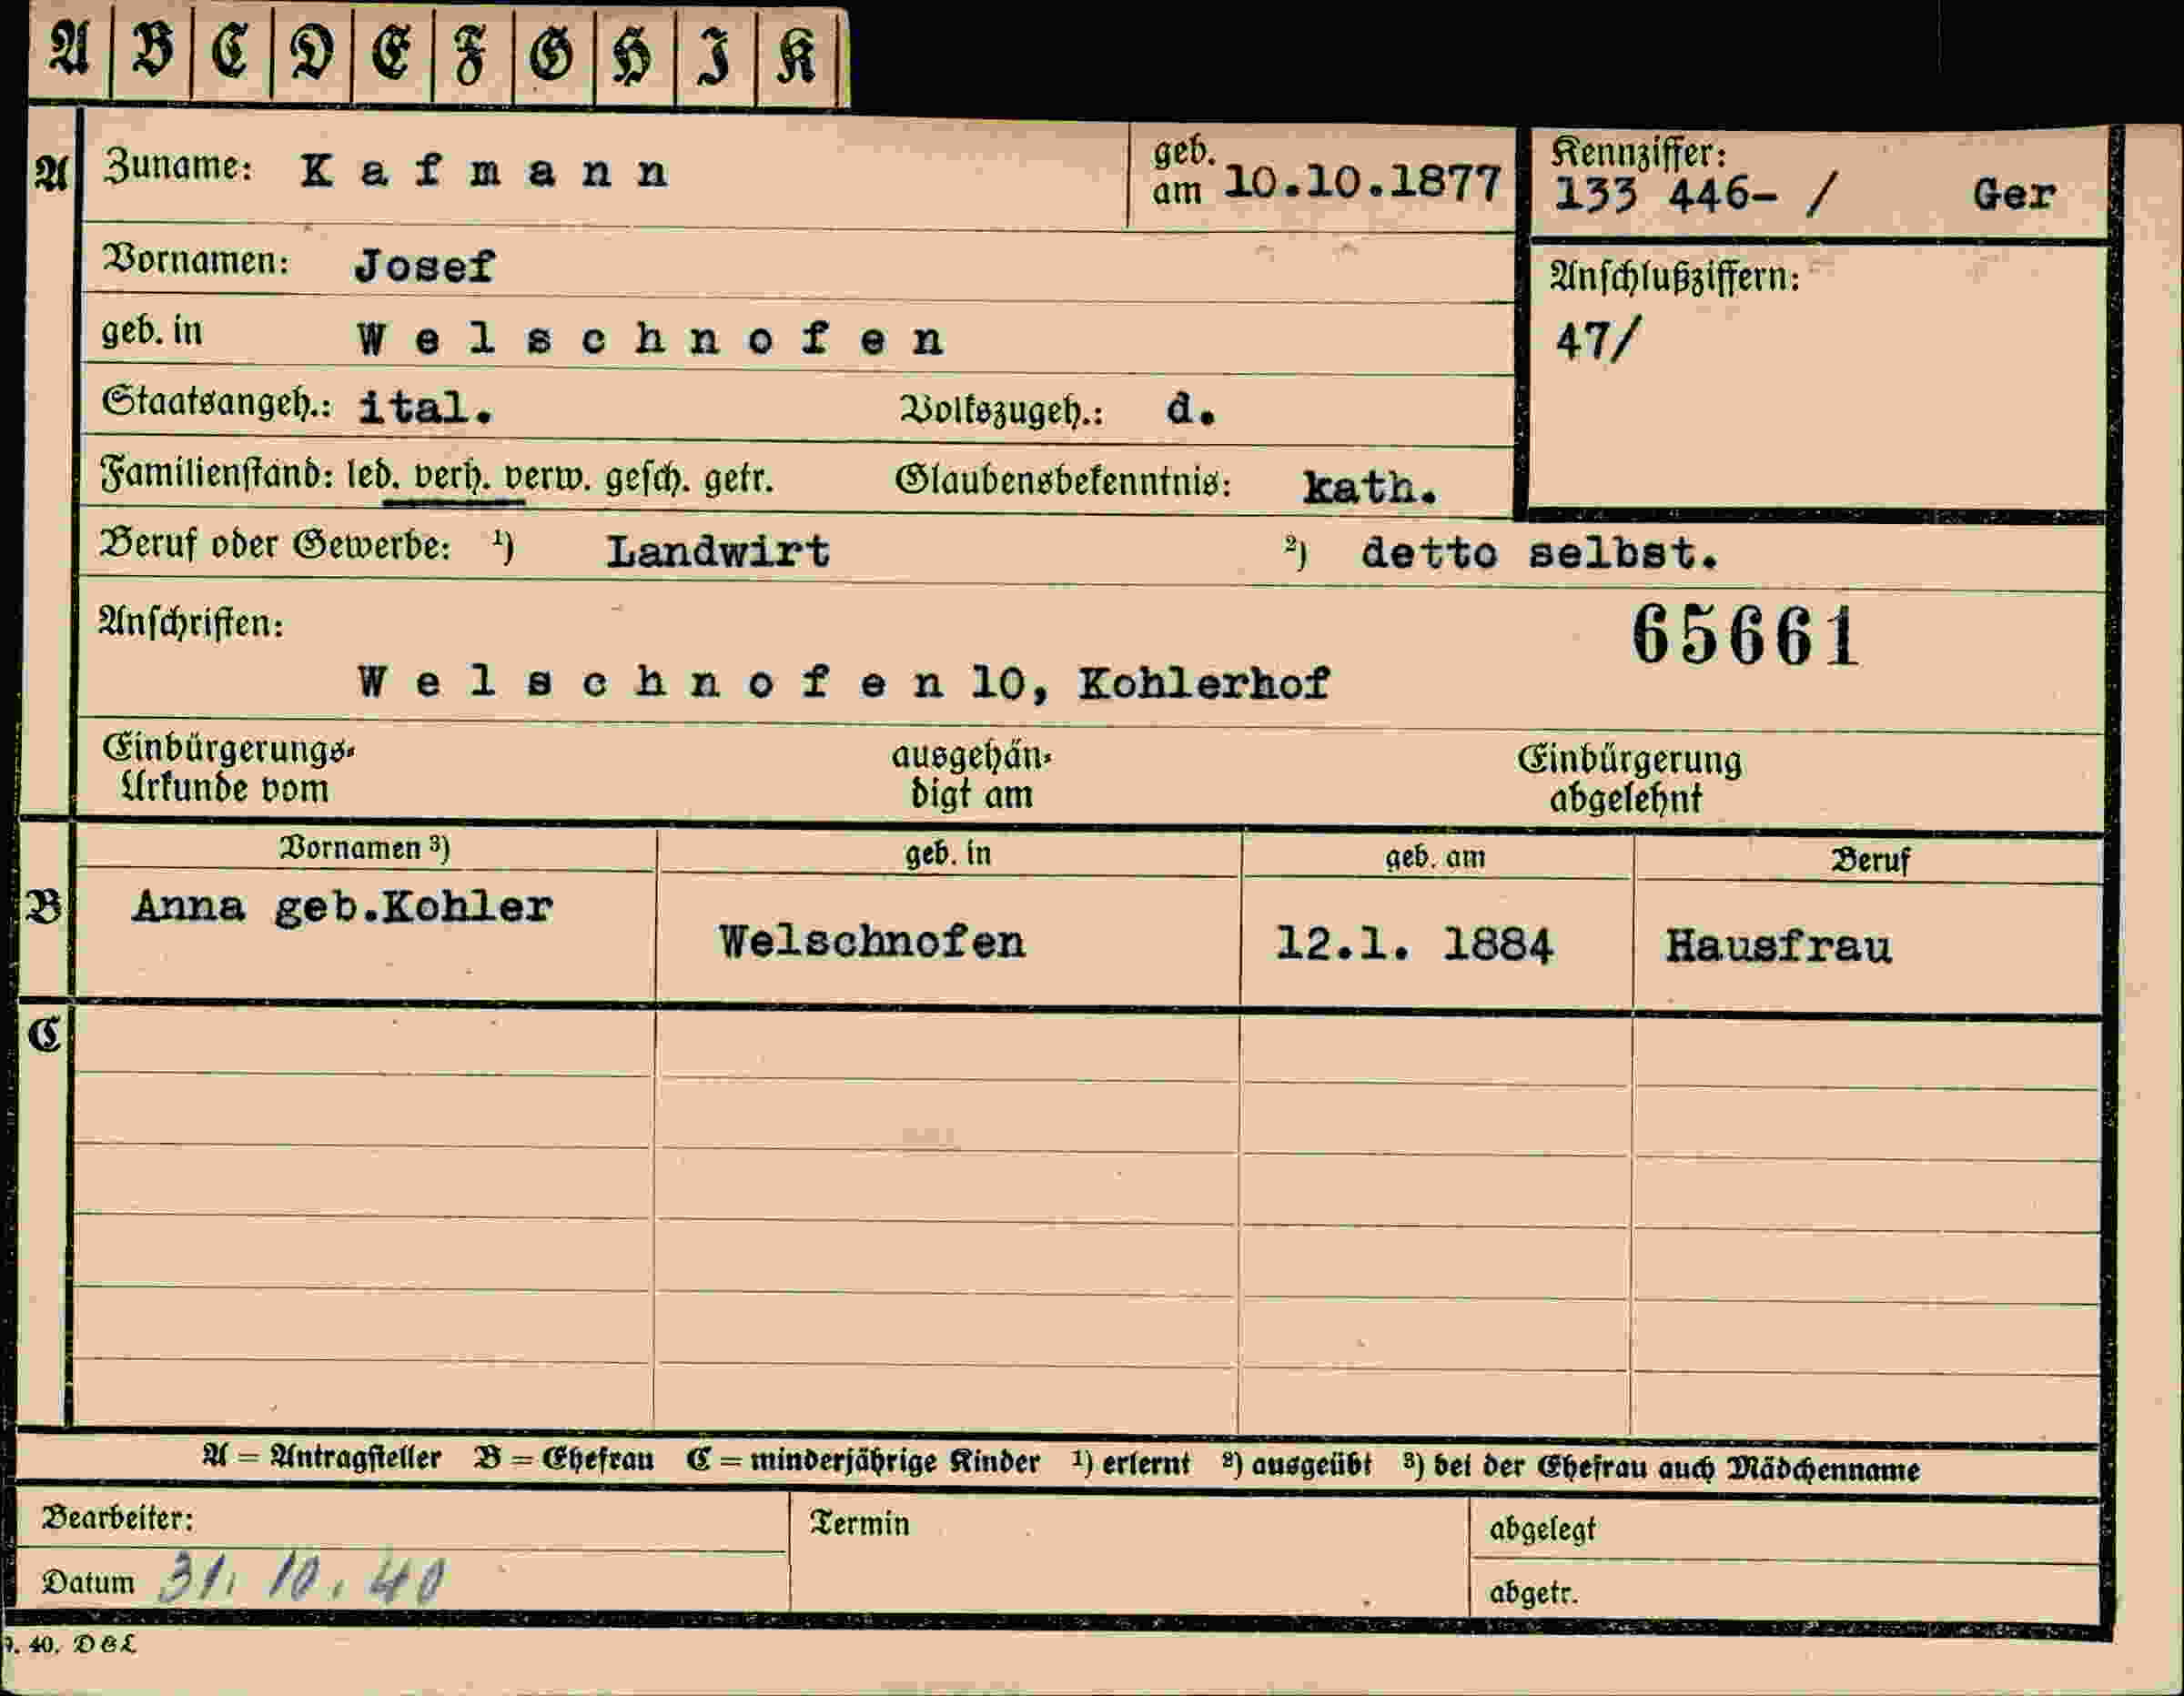 A B C D E F G H I K
A Zuname: Kafmann geb. am 10.10.1877 Kennziffer: 133 446- / Ger
Vornamen: Josef Anschlußziffern:
geb. in Welschnofen 47/
Staatsangeh.: ital. Volkszugeh.: d.
Familienstand: led. verh. verw. gesch. getr. Glaubensbekenntnis: kath.
Beruf oder Gewerbe: 1) Landwirt 2) detto selbst.
Anschriften: 65661
Welschnofen 10, Kohlerhof
Einbürgerungs- ausgehän- Einbürgerung
Urkunde vom digt am abgelehnt
Vornamen 3) geb. in geb. am Beruf
B Anna geb.Kohler Welschnofen 12.1. 1884 Hausfrau
C
A = Antragsteller B = Ehefrau C = minderjährige Kinder 1) erlernt 2) ausgeübt 3) bei der Ehefrau auch Mädchenname
Bearbeiter: Termin abgelegt
Datum 31. 10. 40 abgetr.
40. D&L